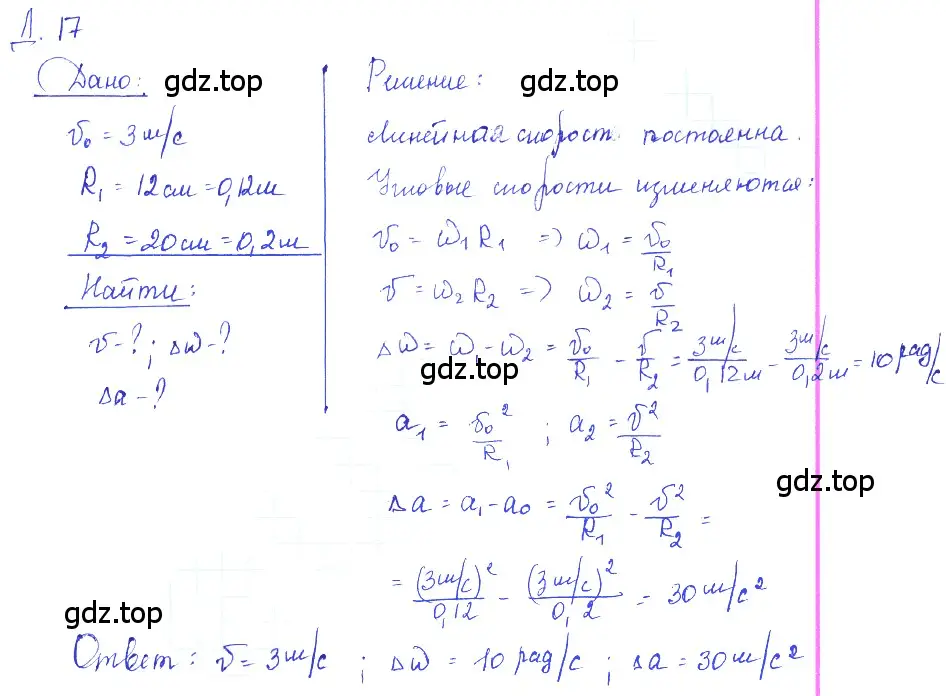 Д. 17
Дано:
gdz.top
v₀ = 3 м/с
R₁ = 12 см = 0,12 м
R₂ = 20 см = 0,2 м
Найти:
v - ? ; Δω - ?
Δa - ?
Решение:
gdz.top
Линейная скорост постоянна.
Угловые скорости изменяются:
v₀ = ω₁ R₁ => ω₁ = v₀/R₁
v = ω₂ R₂ => ω₂ = v/R₂
Δω = ω₁ - ω₂ = v₀/R₁ - v/R₂ = 3 м/с / 0,12 м - 3 м/с / 0,2 м = 10 рад/с
gdz.top
a₁ = v₀²/R₁ ; a₂ = v²/R₂
gdz.top
Δa = a₁ - a₀ = v₀²/R₁ - v²/R₂ =
= (3 м/с)²/0,12 - (3 м/с)²/0,2 = 30 м/с²
gdz.top
Ответ: v = 3 м/с ; Δω = 10 рад/с ; Δa = 30 м/с²